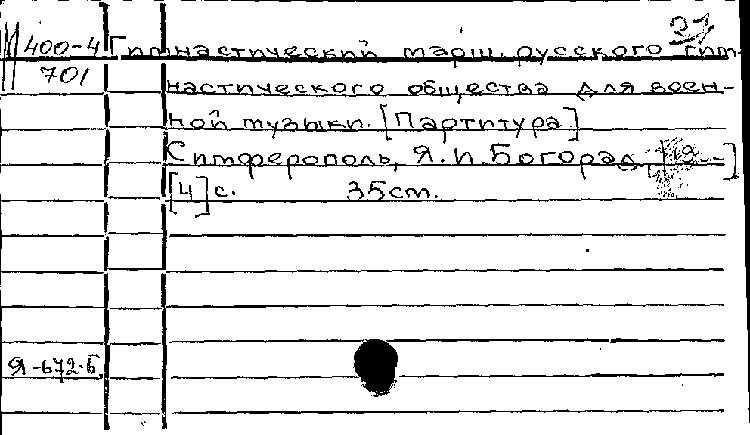 21
400-4 Гимнастический марш русского гим-
701
настического общества для воен-
ной музыки. [Партитура]
Симферополь, Я.И.Богорад, [19--]
[4] с. 35cm.
Я-672.Б